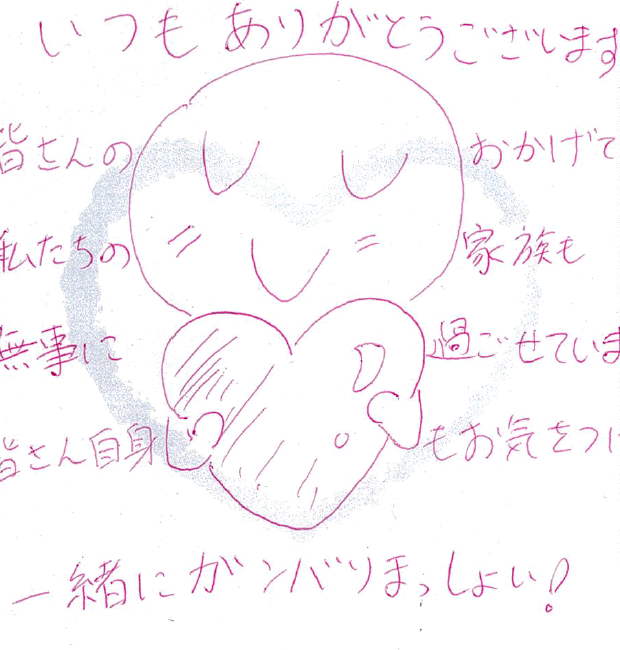 いつもありがとうございます
皆さんの おかげで
私たちの 家族も
無事に 過ごせていま
皆さん自身 もお気をつけ
一緒にガンバりまっしょい!